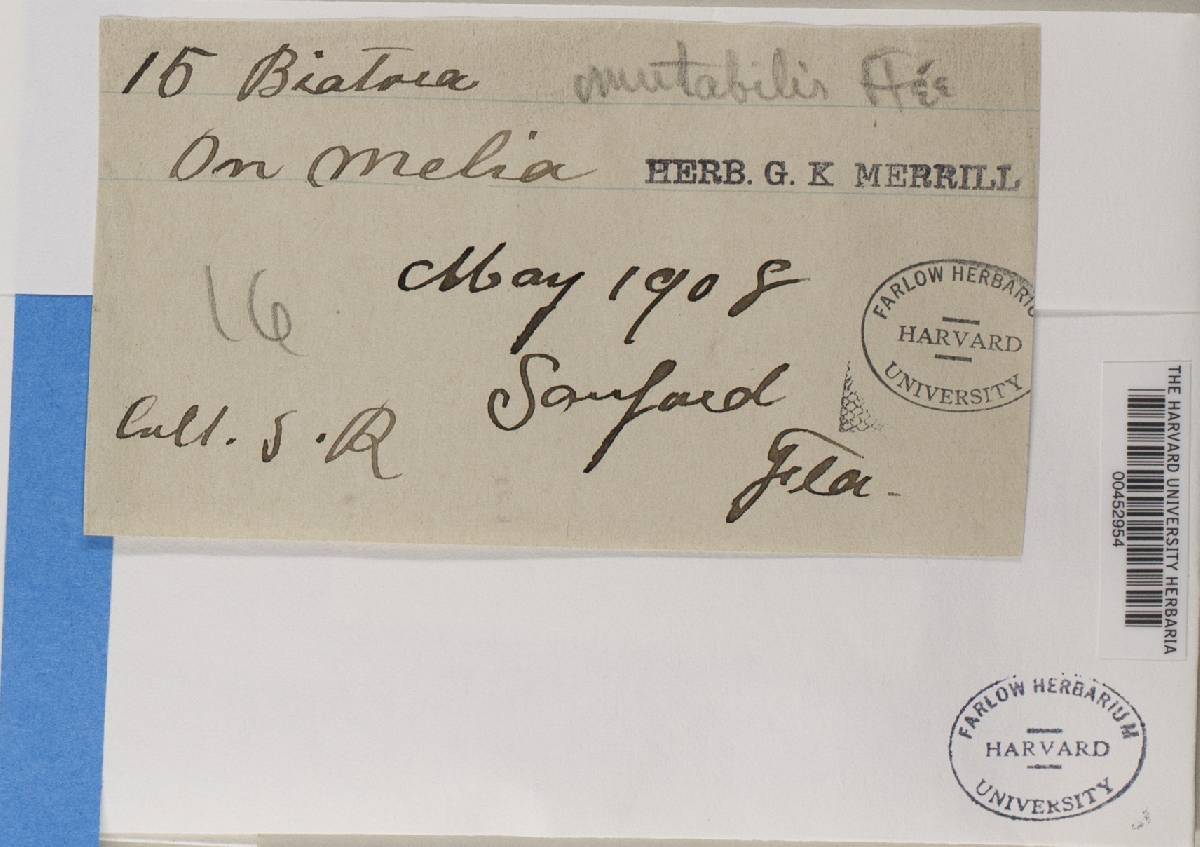 15 Biatora mutabilis Fée
On Melia HERB. G. K MERRILL
May 1908
16
Sanford
Coll. S. R
Fla.
FARLOW HERBARIU
HARVARD
UNIVERSITY
THE HARVARD UNIVERSITY HERBARIA
00452954
FARLOW HERBARIUM
HARVARD
UNIVERSITY